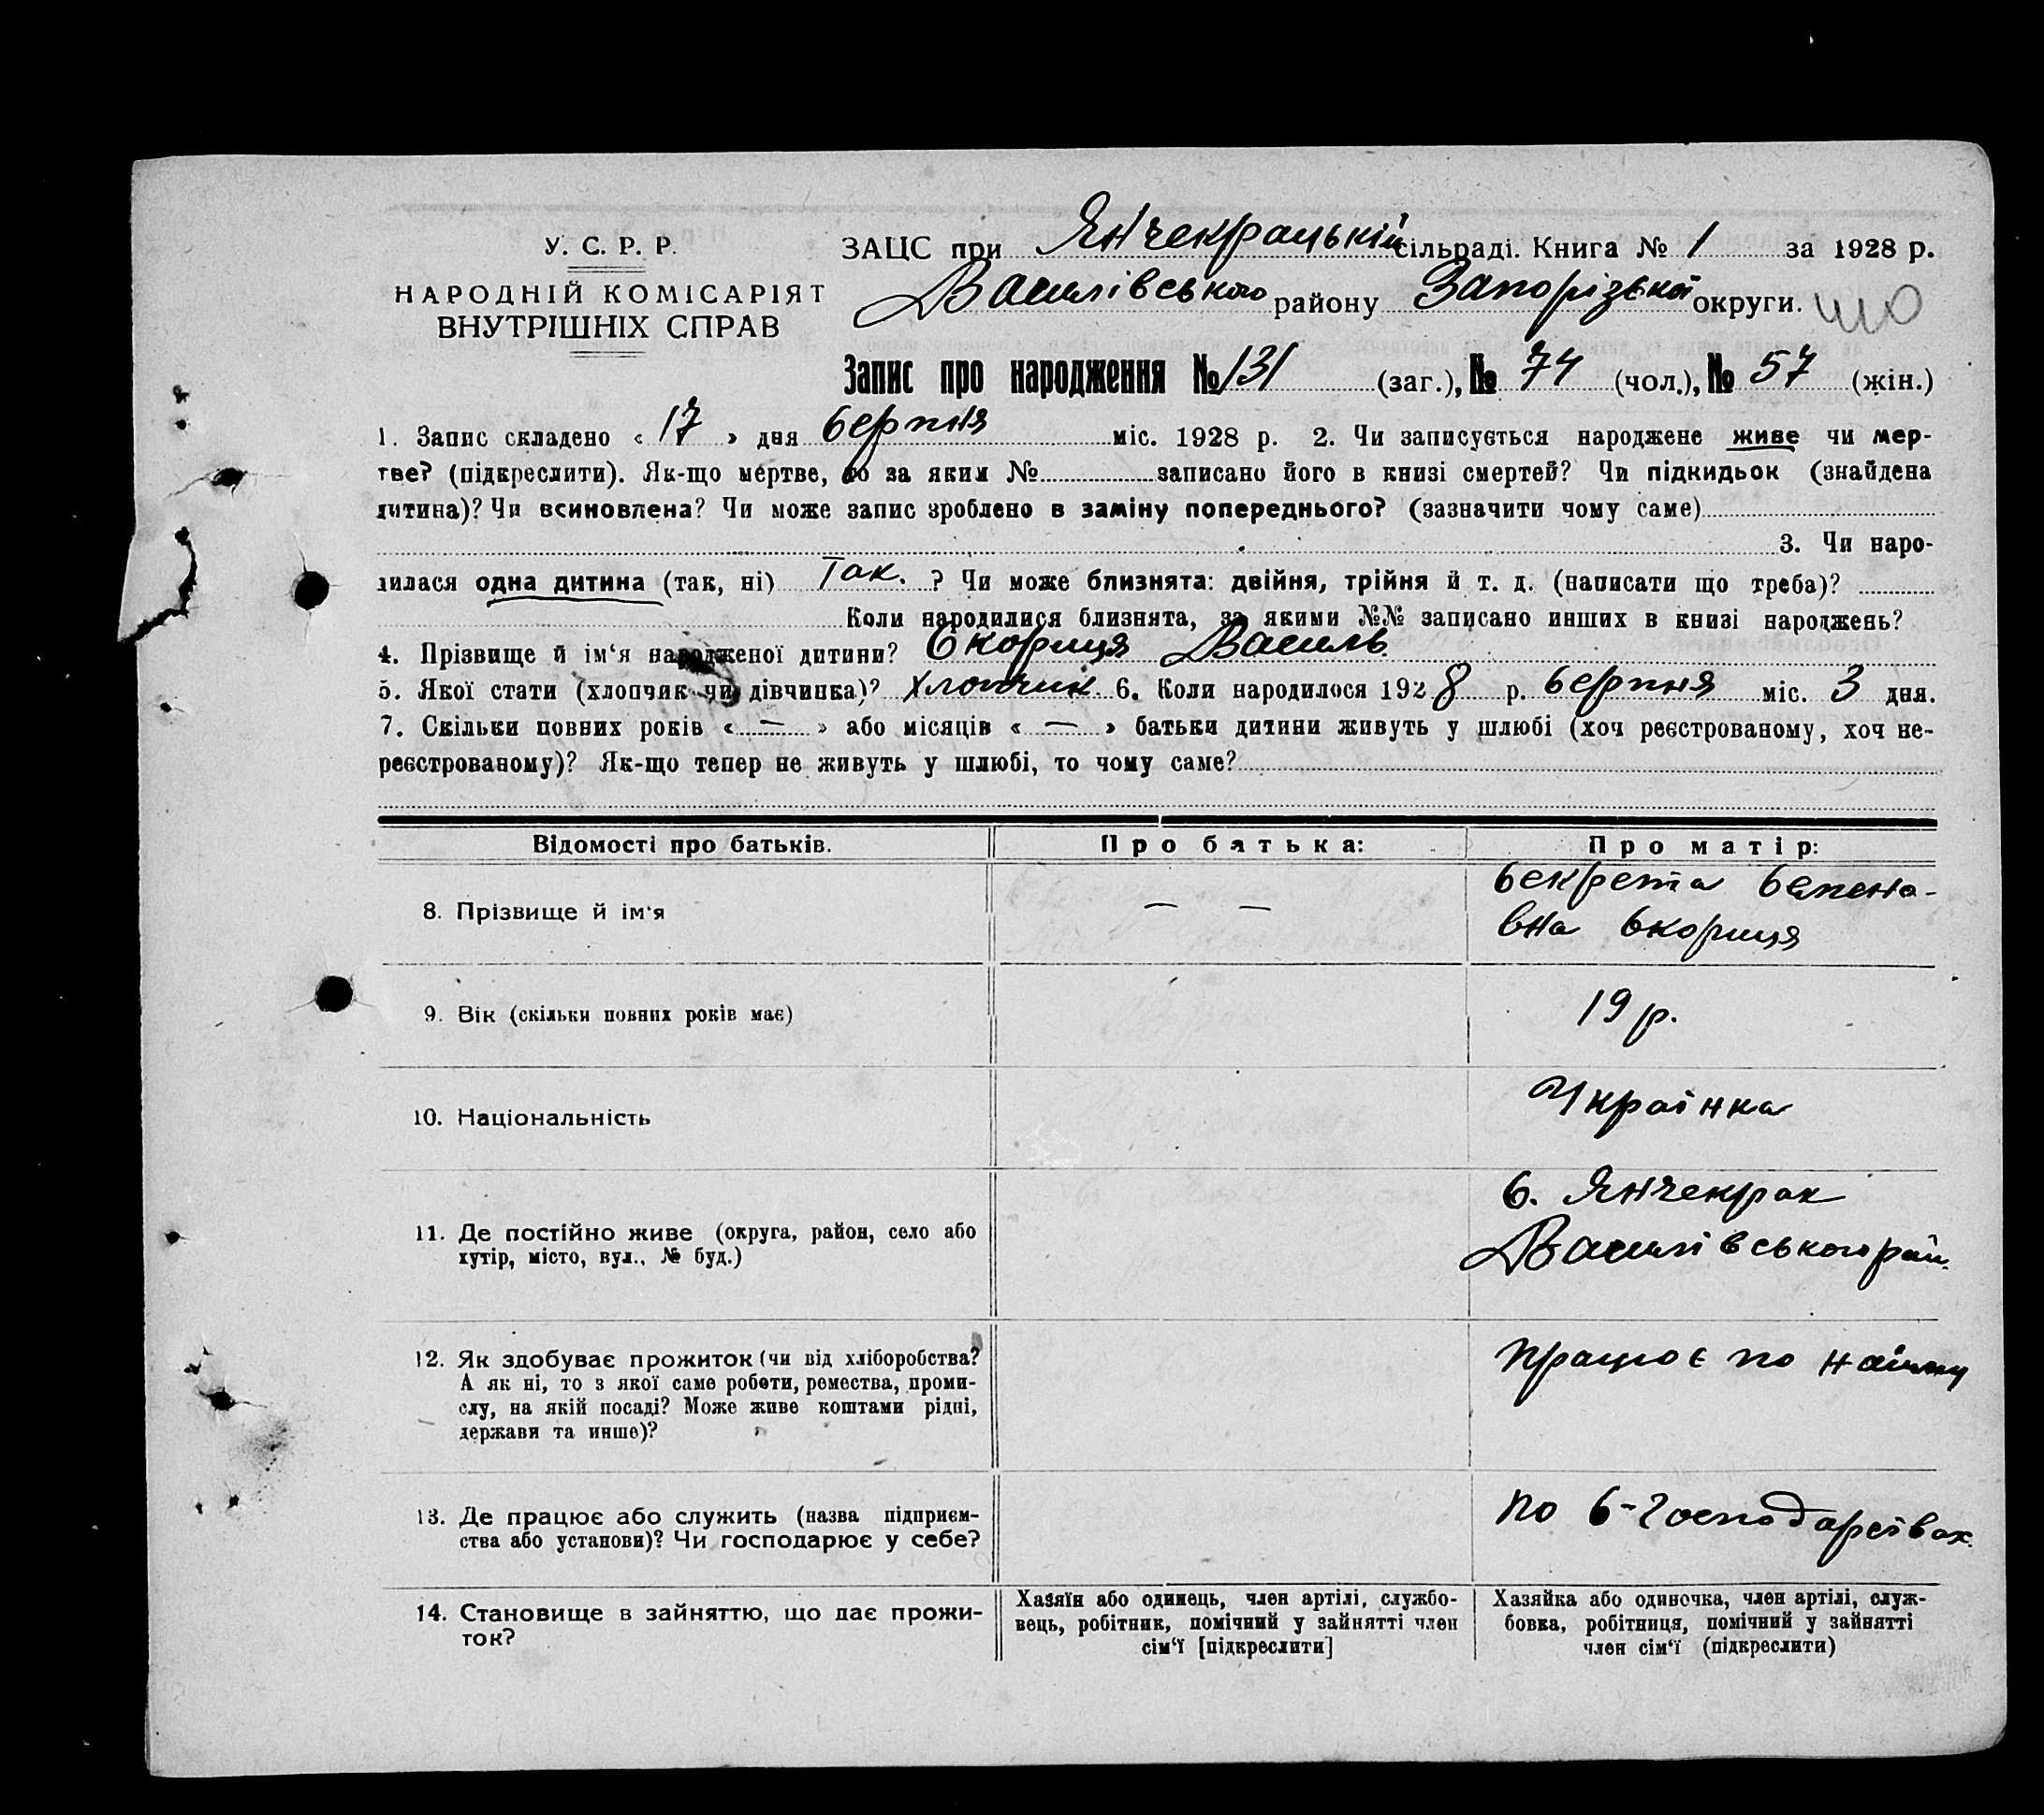 У. С. Р. Р.
НАРОДНІЙ КОМІСАРІЯТ
ВНУТРІШНІХ СПРАВ
ЗАЦС при Янчекрацькій сільраді. Книга № 1 за 1928 р.
Василівського району Запорізької округи.
Запис про народження № 131 (заг.), № 74 (чол.), № 57 (жін.)
1. Запис складено « 17 » дня серпня міс. 1928 р. 2. Чи записується народжене живе чи мер-
тве? (підкреслити). Як-що мертве, то за яким № записано його в книзі смертей? Чи підкидьок (знайдена
дитина)? Чи всиновлена? Чи може запис зроблено в заміну попереднього? (зазначити чому саме)
3. Чи наро-
дилася одна дитина (так, ні) Так. ? Чи може близнята: двійня, трійня й т. д. (написати що треба)?
Коли народилися близнята, за якими №№ записано инших в книзі народжень?
4. Прізвище й ім‘я народженої дитини? Скориця Василь
5. Якої стати (хлопчик чи дівчинка)? Хлопчик 6. Коли народилося 1928 р. серпня міс. 3 дня.
7. Скільки повних років « — » або місяців « — » батьки дитини живуть у шлюбі (хоч реєстрованому, хоч не-
реєстрованому)? Як-що тепер не живуть у шлюбі, то чому саме?
Відомості про батьків. Про батька: Про матір:
8. Прізвище й ім‘я — — Секрета Степена-
вна Скориця
9. Вік (скільки повних років має) 19 р.
10. Національність Українка
11. Де постійно живе (округа, район, село або
хутір, місто, вул., № буд.)
с. Янчекрак
Василівського рай.
12. Як здобуває прожиток (чи від хліборобства?
А як ні, то з якої саме роботи, ремества, проми-
слу, на якій посаді? Може живе коштами рідні,
держави та инше)?
працює по найму
13. Де працює або служить (назва підприєм-
ства або установи)? Чи господарює у себе?
по с-господарствах.
14. Становище в зайняттю, що дає прожи-
ток?
Хазяїн або одинець, член артілі, службо-
вець, робітник, помічний у зайнятті член
сім‘ї [підкреслити]
Хазяйка або одиночка, член артілі, служ-
бовка, робітниця, помічний у зайнятті
член сім‘ї (підкреслити)